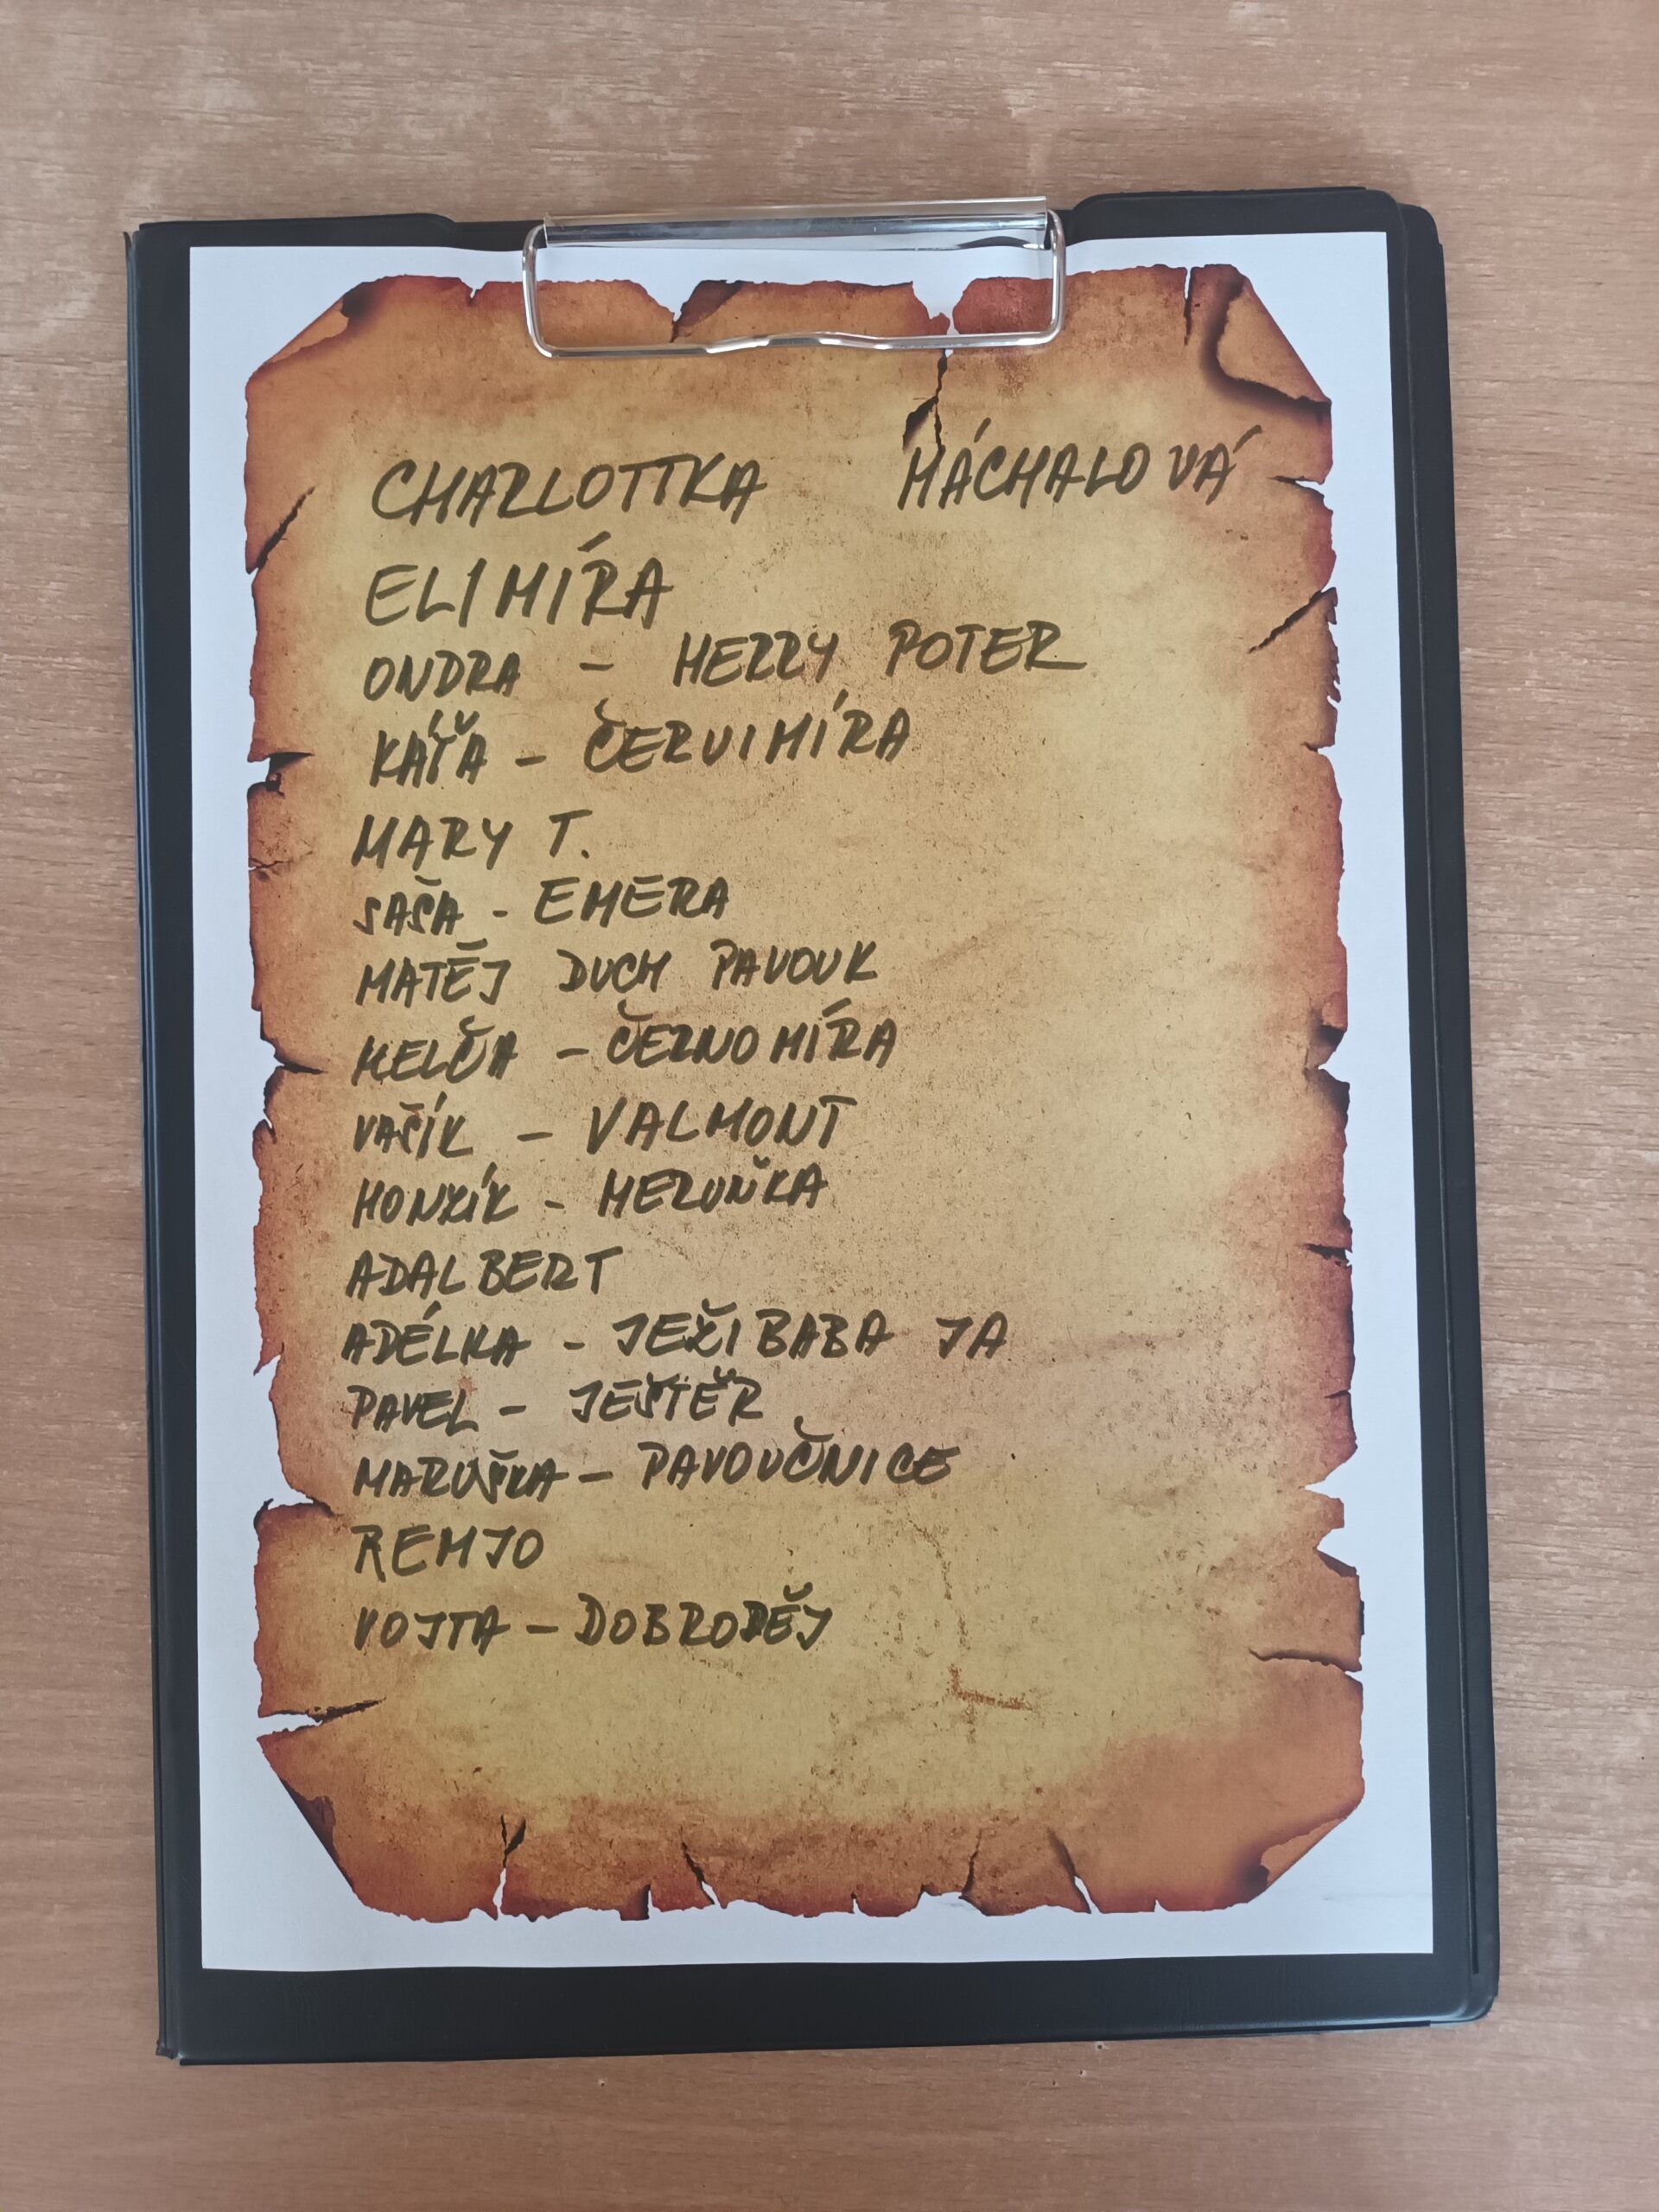 CHARLOTTKA MÁCHALOVÁ
ELIMÍRA
ONDRA - HERRY POTER
KÁŤA - ČERVIMÍRA
MARY T.
SAŠA - EMERA
MATĚJ DUCH PAVOUK
MELČA - ČERNOMÍRA
VAŠÍK - VALMONT
HONZÍK - MERUŇKA
ADALBERT
ADÉLKA - JEŽIBABA JA
PAVEL - JEŠTĚR
MARUŠKA - PAVOUČNICE
REMJO
VOJTA - DOBRODĚJ